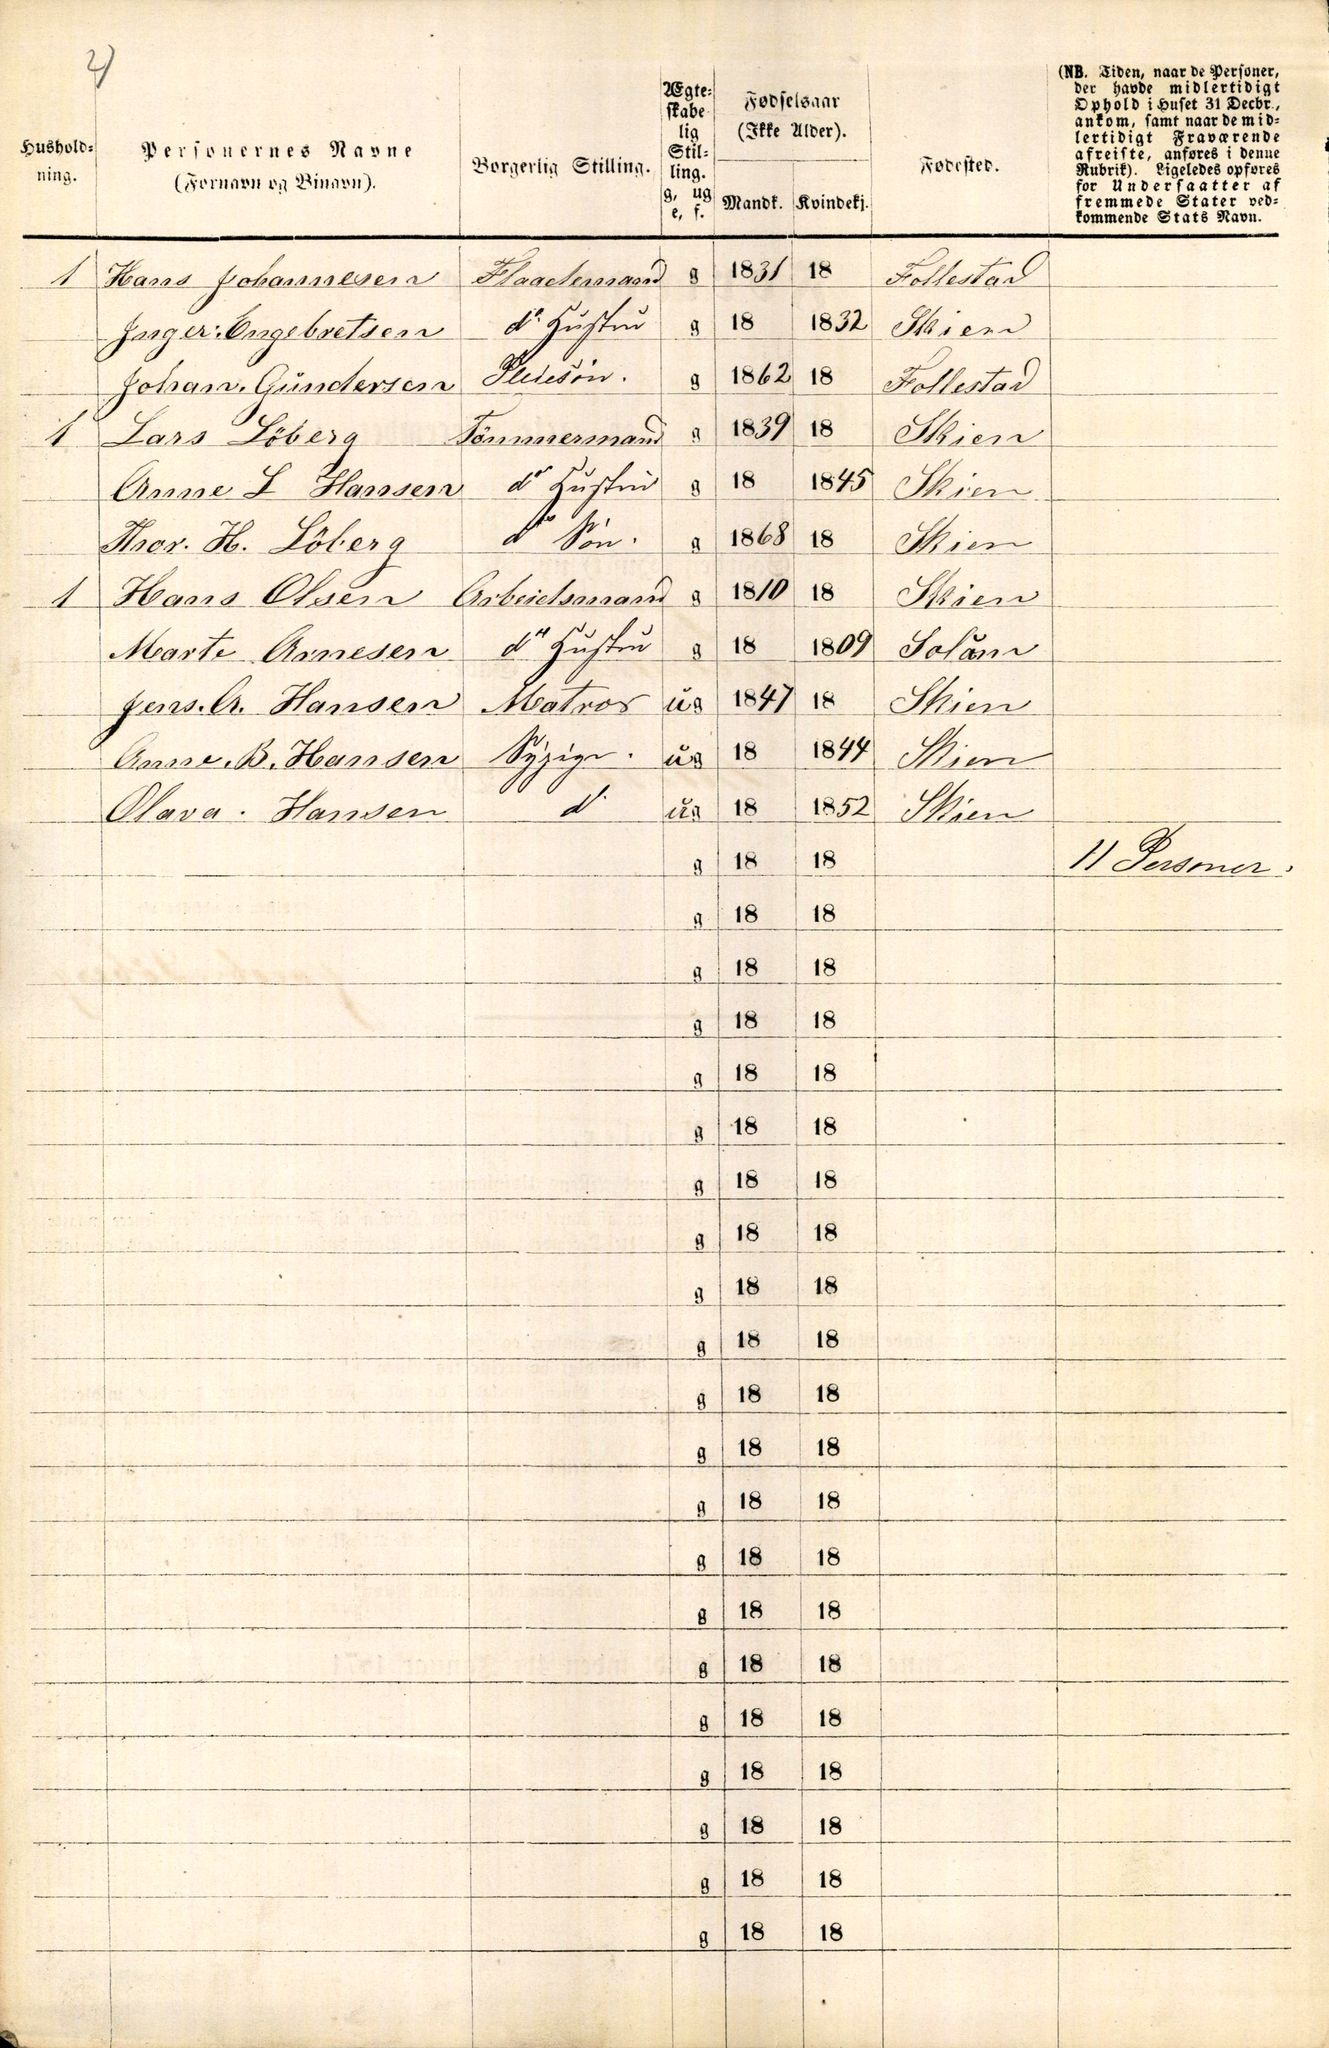 2)
Hushold-
ning.
Personernes Navne
(Fornavn og Binavn).
Borgerlig Stilling.
Ægte-
skabe
lig
Stil-
ling.
g, ug
e, f.
Fødselsaar
(Ikke Alder).
Mandk. Kvindekj.
Fødested.
(NB. Tiden, naar de Personer,
der havde midlertidigt
Ophold i Huset 31 Decbr.,
ankom, samt naar de mid-
lertidigt Fraværende
afreiste, anføres i denne
Rubrik). Ligeledes opføres
for Undersaatter af
fremmede Stater ved-
kommende Stats Navn.
1 Hans Johannesen Flaademand g 1831 18 Follestad
Inger Engebretsen do Hustru g 18 1832 Skien
Johan Gundersen Pleiesøn. g 1862 18 Follestad
1 Lars Löberg Tömmermand g 1839 18 Skien
Anne L Hansen do Hustru g 18 1845 Skien
Thor. H. Löberg do Sön. g 1868 18 Skien
1 Hans Olsen Arbeidsmand g 1810 18 Skien
Marte Arnesen do Hustru g 18 1809 Solum
Jens. A. Hansen Matros ug 1847 18 Skien
Anne. B. Hansen Sypige. ug 18 1844 Skien
Olava. Hansen do ug 18 1852 Skien
g 18 18 11 Personer.
g 18 18
g 18 18
g 18 18
g 18 18
g 18 18
g 18 18
g 18 18
g 18 18
g 18 18
g 18 18
g 18 18
g 18 18
g 18 18
g 18 18
g 18 18
g 18 18
g 18 18
g 18 18
g 18 18
g 18 18